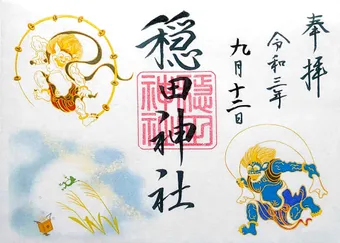 奉拝
令和三年
九月十二日
穏田神社
穏田神社